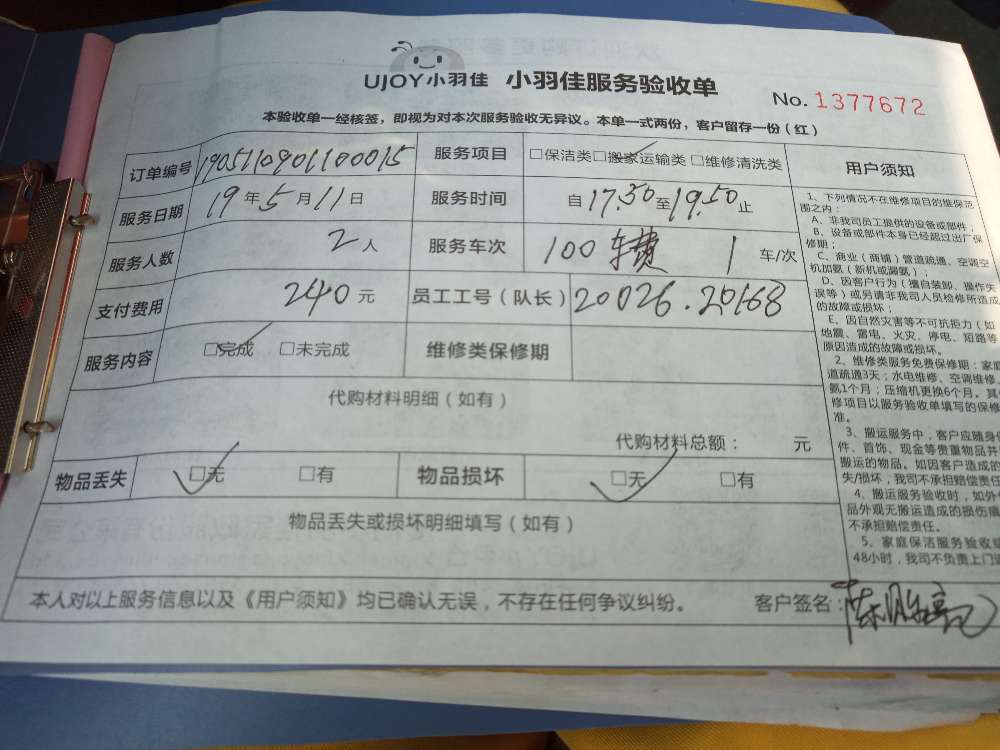 UJOY小羽佳 小羽佳服务验收单
No. 1377672
本验收单一经核签，即视为对本次服务验收无异议。本单一式两份，客户留存一份（红）
订单编号 1905110901100015 服务项目 □保洁类□搬家运输类□维修清洗类
服务日期 19年5月11日 服务时间 自17.50至19.50止
服务人数 2人 服务车次 100车费 1车/次
支付费用 240元 员工工号（队长） 20026.20168
服务内容 □完成 □未完成 维修类保修期
代购材料明细（如有）
代购材料总额： 元
物品丢失 □无 □有 物品损坏 □无 □有
物品丢失或损坏明细填写（如有）
本人对以上服务信息以及《用户须知》均已确认无误，不存在任何争议纠纷。 客户签名：
用户须知
1、下列情况不在维修项目的维保范
围之内：
A、非我司员工提供的设备或部件；
B、设备或部件本身已经超过出厂保
修期；
C、商业（商铺）管道疏通、空调空
机加氨（新机或漏氨）；
D、因客户行为（擅自装卸、操作失
误等）或另请非我司人员检修所造成
的故障或损坏；
E、因自然灾害等不可抗拒力（如
地震、雷电、火灾、停电、短路等
原因造成的故障或损坏。
2、维修类服务免费保修期：家庭
道疏通3天；水电维修、空调维修
氨1个月；压缩机更换6个月。其
修项目以服务验收单填写的保修
准。
3、搬运服务中，客户应随身
件、首饰、现金等贵重物品并
搬运的物品。如因客户造成的
失/损坏，我司不承担赔偿责任
4、搬运服务验收时，如外
品外观无搬运造成的损伤痕
不承担赔偿责任。
5、家庭保洁服务验收单
48小时，我司不负责上门